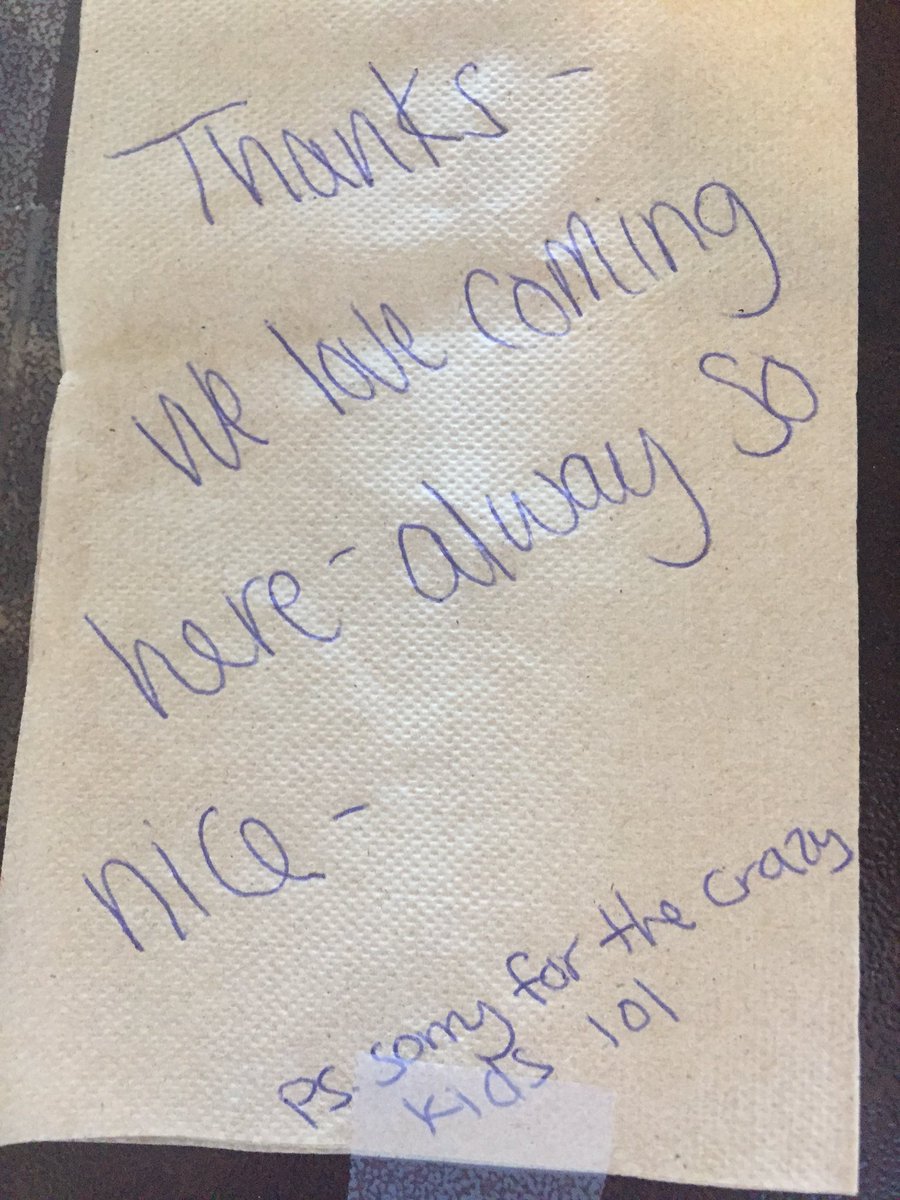 Thanks -
We love coming
here - alway so
nice -
PS. sorry for the crazy
kids lol